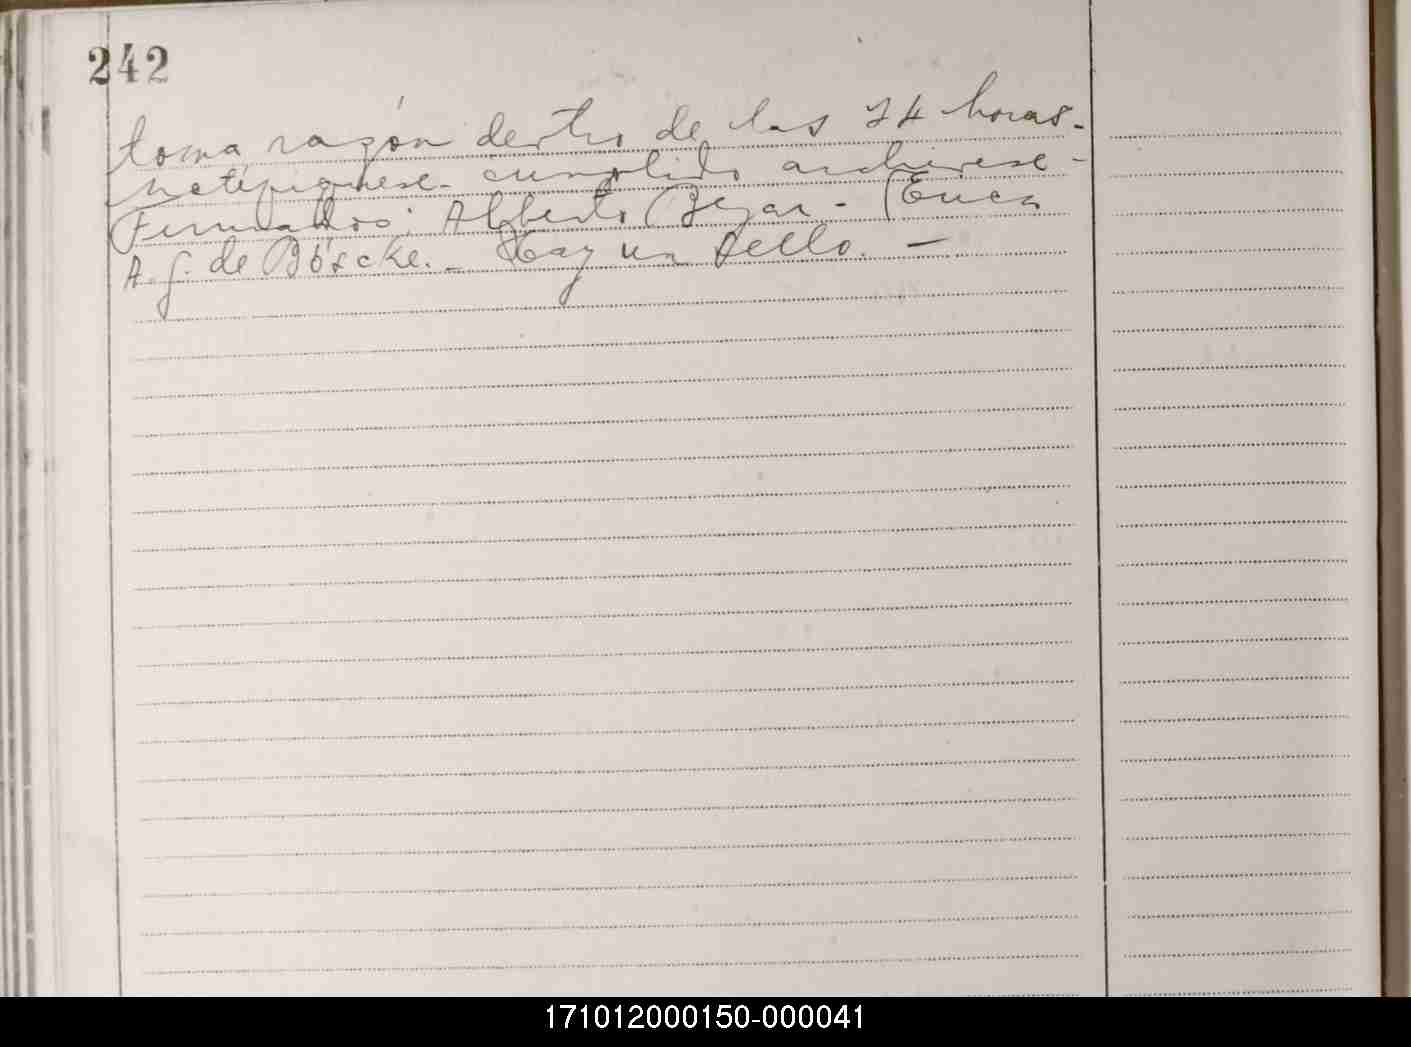 242
toma razón dentro de las 24 horas.-
notifíquese - cumplido archívese -
Firmados: Alberto Bejar - Erica
A. G. de Böscke. - Hay un sello. -
171012000150-000041